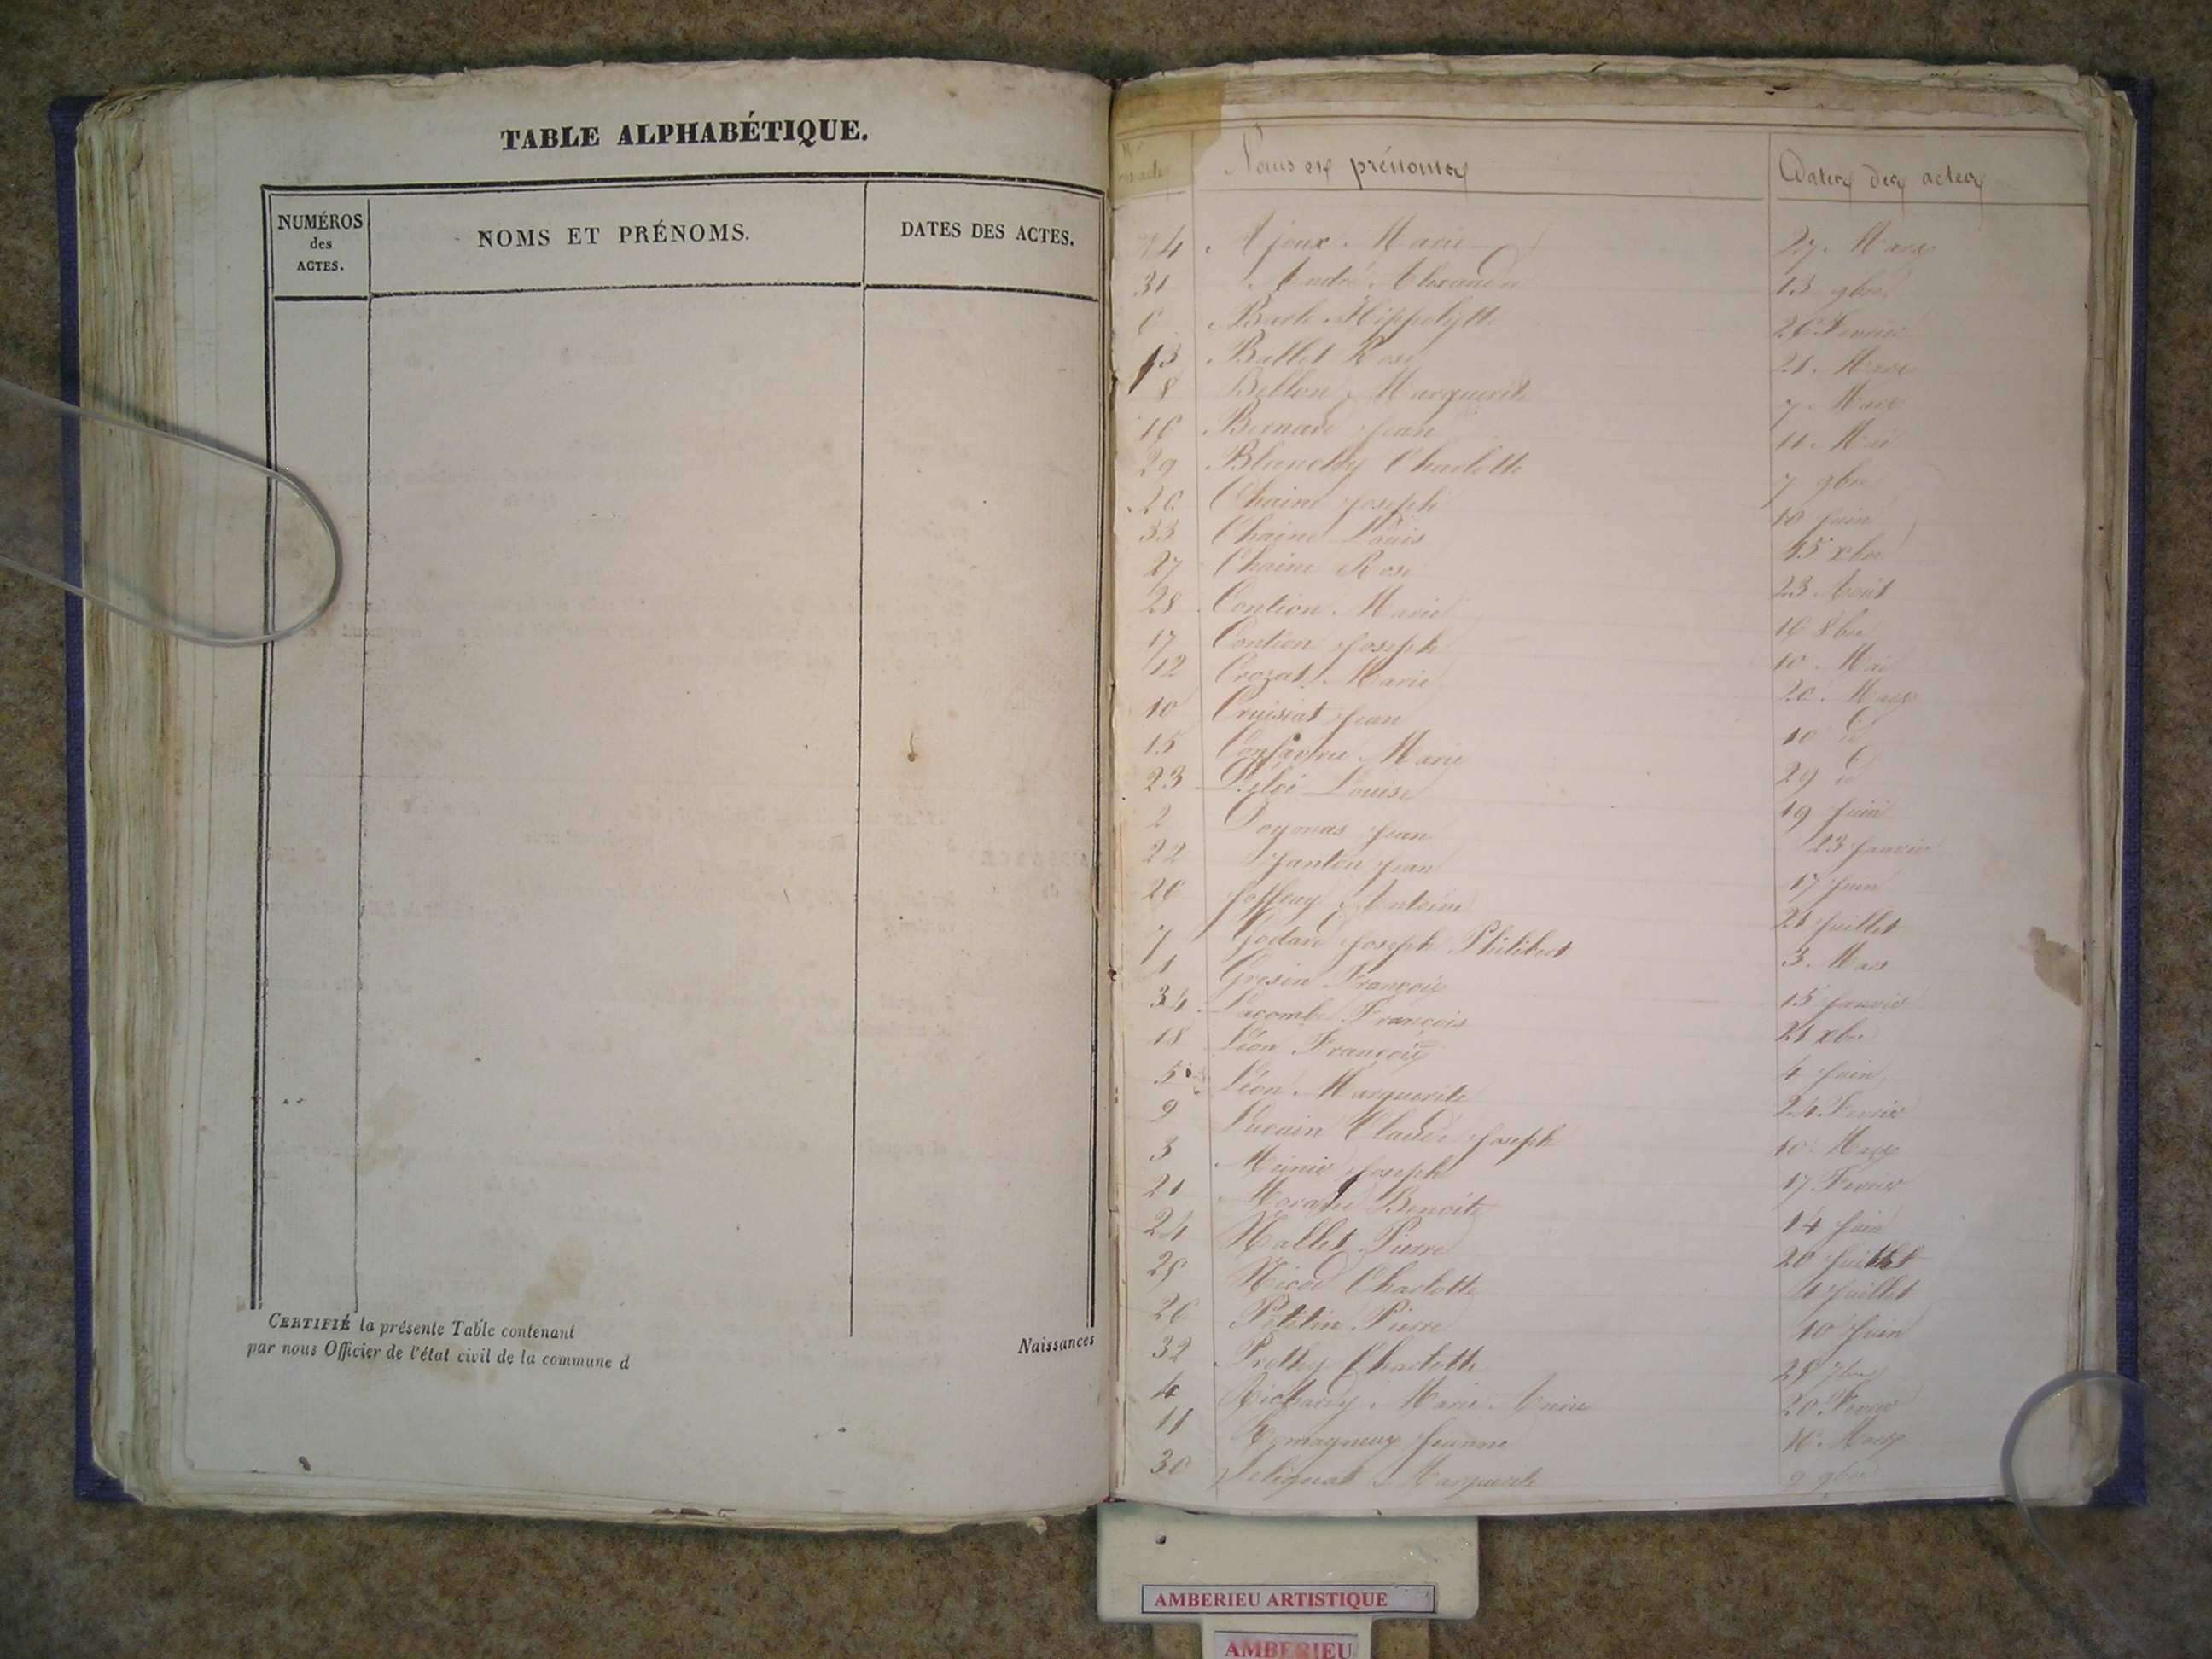 TABLE ALPHABÉTIQUE.
NUMÉROS
des
ACTES.
NOMS ET PRÉNOMS.
DATES DES ACTES.
CERTIFIÉ la présente Table contenant
par nous Officier de l'état civil de la commune d
Naissances
Noms et prénoms Dates des actes
14 Ajoux Marie 27 Mars
31 André 13 9bre
Hippolyte 26 Fevrier
13 Ballet Rose 21 Mars
8 Bellon Marguerite 7 Mars
16 Bernard Jean 11 Mai
29 Blanchy Charlotte 7 9bre
20 Chaine Joseph 10 Juin
33 Chaine Louis 15 xbre
27 Chaine Rose 23 Août
28 Contion Marie 16 8bre
17 Contion Joseph 10 Mai
12 Crozat Marie 20 Mars
10 Cruisiat Jean 10 d
15 Confavreu Marie 29 d
23 Louise 19 Juin
2 Doyonas Jean 23 Janvier
22 Jean 17 Juin
26 Joffray Antoine 21 Juillet
7 Godard Joseph Philibert 3 Mars
1 Gresin François 15 Janvier
34 Lacombe François 21 xbre
18 Léon François 4 Juin
5 Léon Marguerite 24 Fevrier
9 Claude Joseph 10 Mars
3 Joseph 17 Fevrier
21 Benoite 14 Juin
24 Nallet Pierre 20 Juillet
25 Nicod Charlotte Juillet
26 Petitin Pierre 10 Juin
32 Prothy Charlotte
4 Richardy Marie 20 Fevrier
11 Jeanne Mars
30 Marguerite 9 9bre
AMBERIEU ARTISTIQUE
AMBERIEU